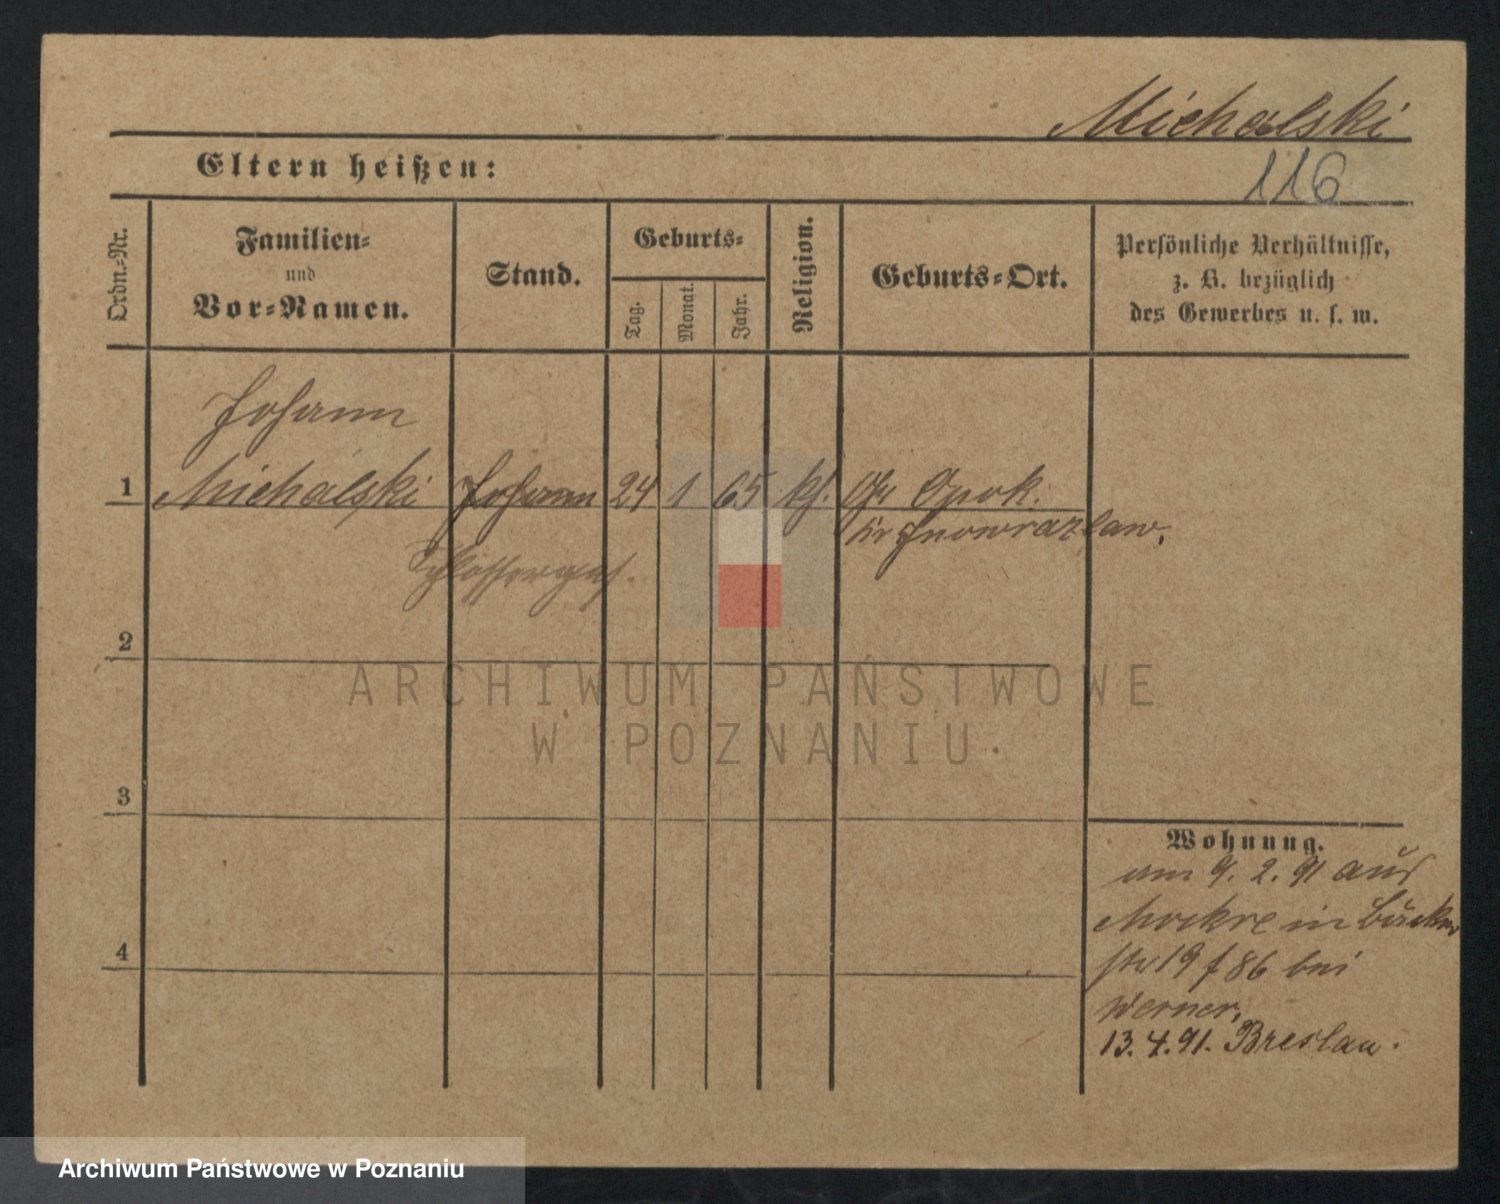 Michalski
Eltern heißen:
116
Ordn.-Nr.
Familien-
und
Vor-Namen.
Stand.
Geburts-
Tag.
Monat.
Jahr.
Religion.
Geburts-Ort.
Persönliche Verhältnisse,
z. B. bezüglich
des Gewerbes u. s. w.
Johann
1 Michalski Johann 24 1 65 kt. Gr Opok.
Kr Inowrazlaw.
Schlosserges.
2
ARCHIWUM PAŃSTWOWE
W POZNANIU
3
Wohnung.
am 9. 2. 91 aus
Mockre in
4
str 19 f 86 bei
Werner,
13. 4. 91. Breslau.
Archiwum Państwowe w Poznaniu